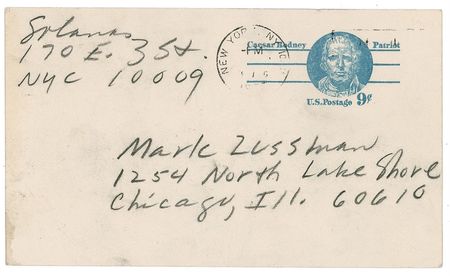 Solanas
170 E. 3 St.
NYC 10009
NEW YORK, N.Y.
PM
Caesar Rodney Patriot
U.S. Postage 9¢
Mark Zussman
1254 North Lake Shore
Chicago, Ill. 60610